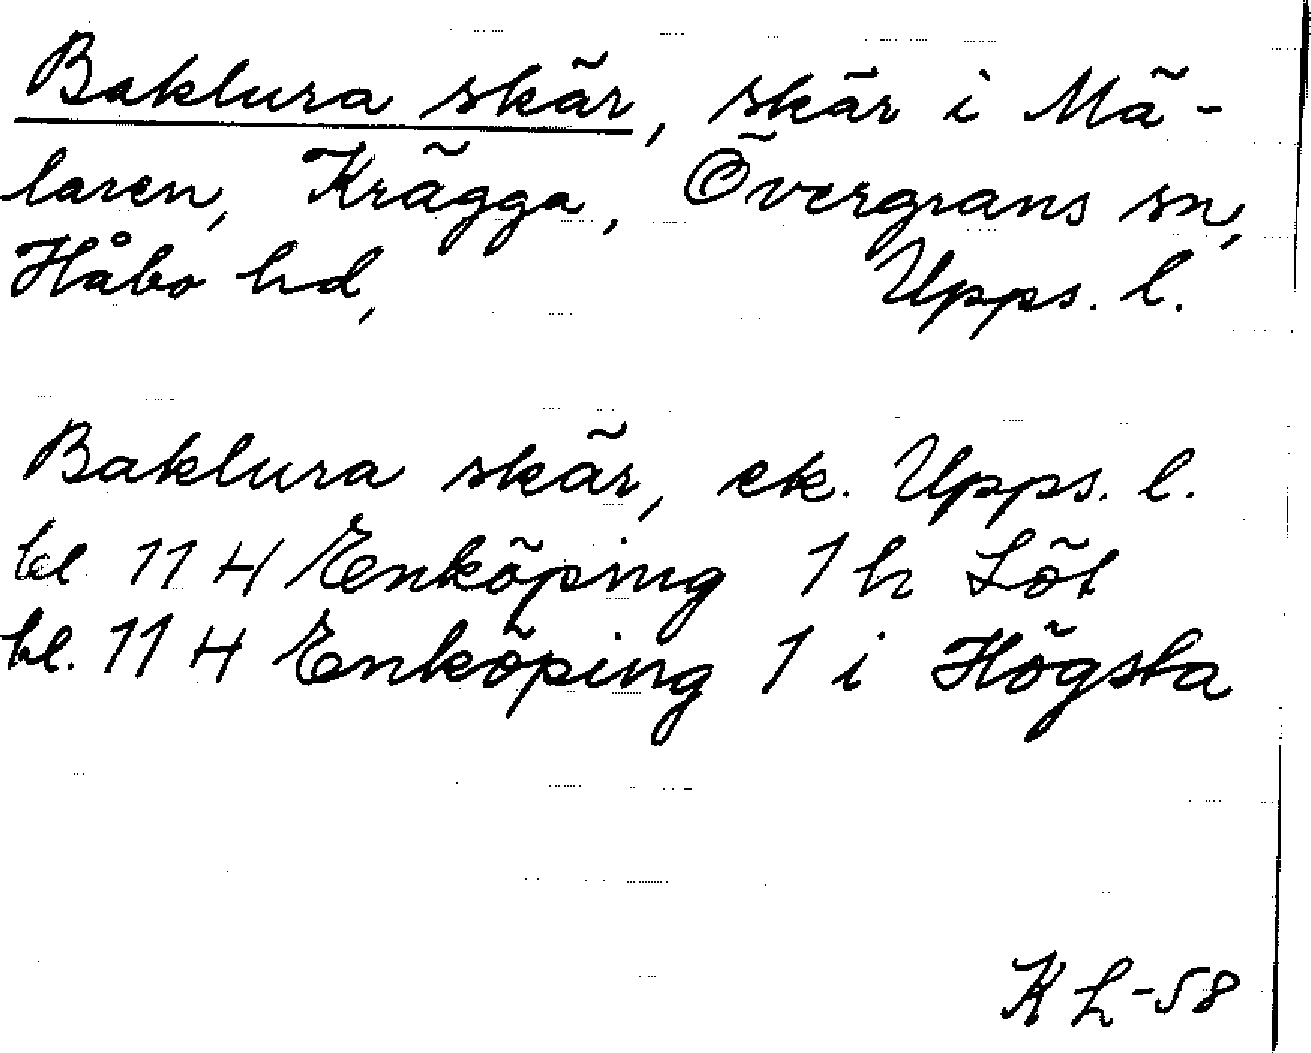 Baklura skär, skär i Mä-
laren, Krägga, Övergrans sn,
Håbo hd, Upps. l.
Baklura skär, ek. Upps. l.
bl 11 H Enköping 1 h Löt
bl. 11 H Enköping 1 i Högsta
K L-58